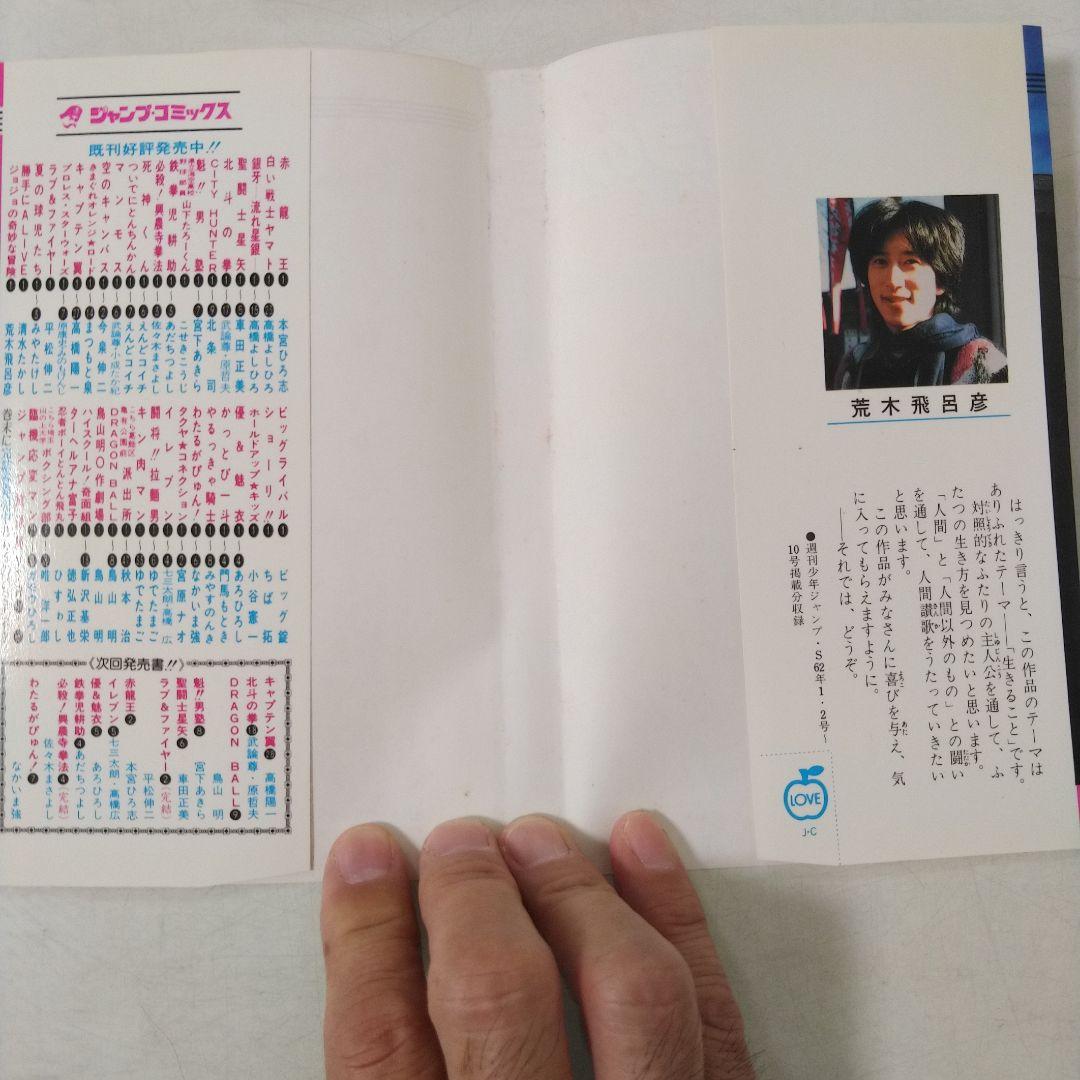 荒木飛呂彦
はっきり言うと、この作品のテーマは
ありふれたテーマ――「生きること」です。
対照的なふたりの主人公を通して、ふ
たつの生き方を見つめたいと思います。
「人間」と「人間以外のもの」との闘い
を通して、人間讃歌をうたっていきたい
と思います。
この作品がみなさんに喜びを与え、気
に入ってもらえますように。
――それでは、どうぞ。
●週刊少年ジャンプ・S62年1・2号~
10号掲載分収録
LOVE
J・C
ジャンプ・コミックス
既刊好評発売中!!
赤龍王❶ 本宮ひろ志
白い戦士ヤマト 高橋よしひろ
銀牙―流れ星銀― 高橋よしひろ
聖闘士星矢 車田正美
北斗の拳 武論尊・原哲夫
CITY HUNTER 北条司
魁!!男塾 宮下あきら
県立海空高校野球部員山下たろーくん こせきこうじ
鉄拳児耕助 あだちつよし
必殺!興農寺拳法 佐々木まさよし
死神くん えんどコイチ
ついでにとんちんかん えんどコイチ
マンモス 武論尊・小成たか紀
空のキャンバス 今泉伸二
きまぐれオレンジ★ロード まつもと泉
キャプテン翼 高橋陽一
プロレス・スターウォーズ 原康史・みのもけんじ
ラブ&ファイヤー 平松伸二
夏の球児たち みやたけし
勝手にALIVE 清水たかし
ジョジョの奇妙な冒険❶ 荒木飛呂彦
ビッグライバル ビッグ錠
ショーリ!! ちば拓
ホールドアップ★キッズ 小谷憲一
優&魅衣 あろひろし
かっとび一斗 門馬もとき
やるっきゃ騎士 みやすのんき
わたるがぴゅん! なかいま強
タクヤ★コネクション 宮原ナオ
イレブン 七三太朗・高橋広
闘将!!拉麵男 ゆでたまご
キン肉マン ゆでたまご
こちら葛飾区亀有公園前派出所 秋本治
DRAGON BALL 鳥山明
鳥山明〇作劇場 鳥山明
ハイスクール!奇面組 新沢基栄
ターヘルアナ富子 徳弘正也
忍者ボーイとんとん飛丸 ひすゎし
こちら埼玉山の上大学ボクシング部 唯洋一郎
臨機応変マン
《次回発売書!!》
キャプテン翼 高橋陽一
北斗の拳⓲ 武論尊・原哲夫
DRAGON BALL❾ 鳥山明
魁!!男塾❽ 宮下あきら
聖闘士星矢❻ 車田正美
ラブ&ファイヤー❷(完結) 平松伸二
赤龍王❷ 本宮ひろ志
イレブン❺ 七三太朗・高橋広
優&魅衣❺ あろひろし
鉄拳児耕助❹ あだちつよし
必殺!興農寺拳法❹(完結) 佐々木まさよし
わたるがぴゅん!❼ なかいま強